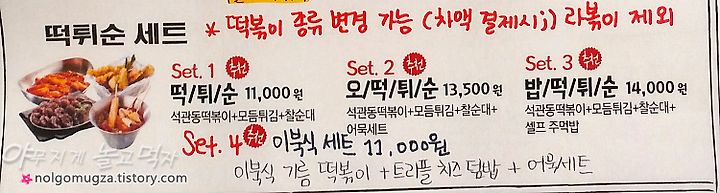 떡튀순 세트 * 떡볶이 종류 변경 가능 (차액 결제시;) 라볶이 제외
Set. 1 추천
떡/튀/순 11,000원
석관동떡볶이+모듬튀김+찰순대
Set. 2 추천
오/떡/튀/순 13,500원
석관동떡볶이+모듬튀김+찰순대+
어묵세트
Set. 3 추천
밥/떡/튀/순 14,000원
석관동떡볶이+모듬튀김+찰순대+
셀프 주먹밥
Set. 4 추천 이북식 세트 11,000원
이북식 기름 떡볶이 + 트러플 치즈 덮밥 + 어묵세트
야무지게 놀고먹자
nolgomugza.tistory.com